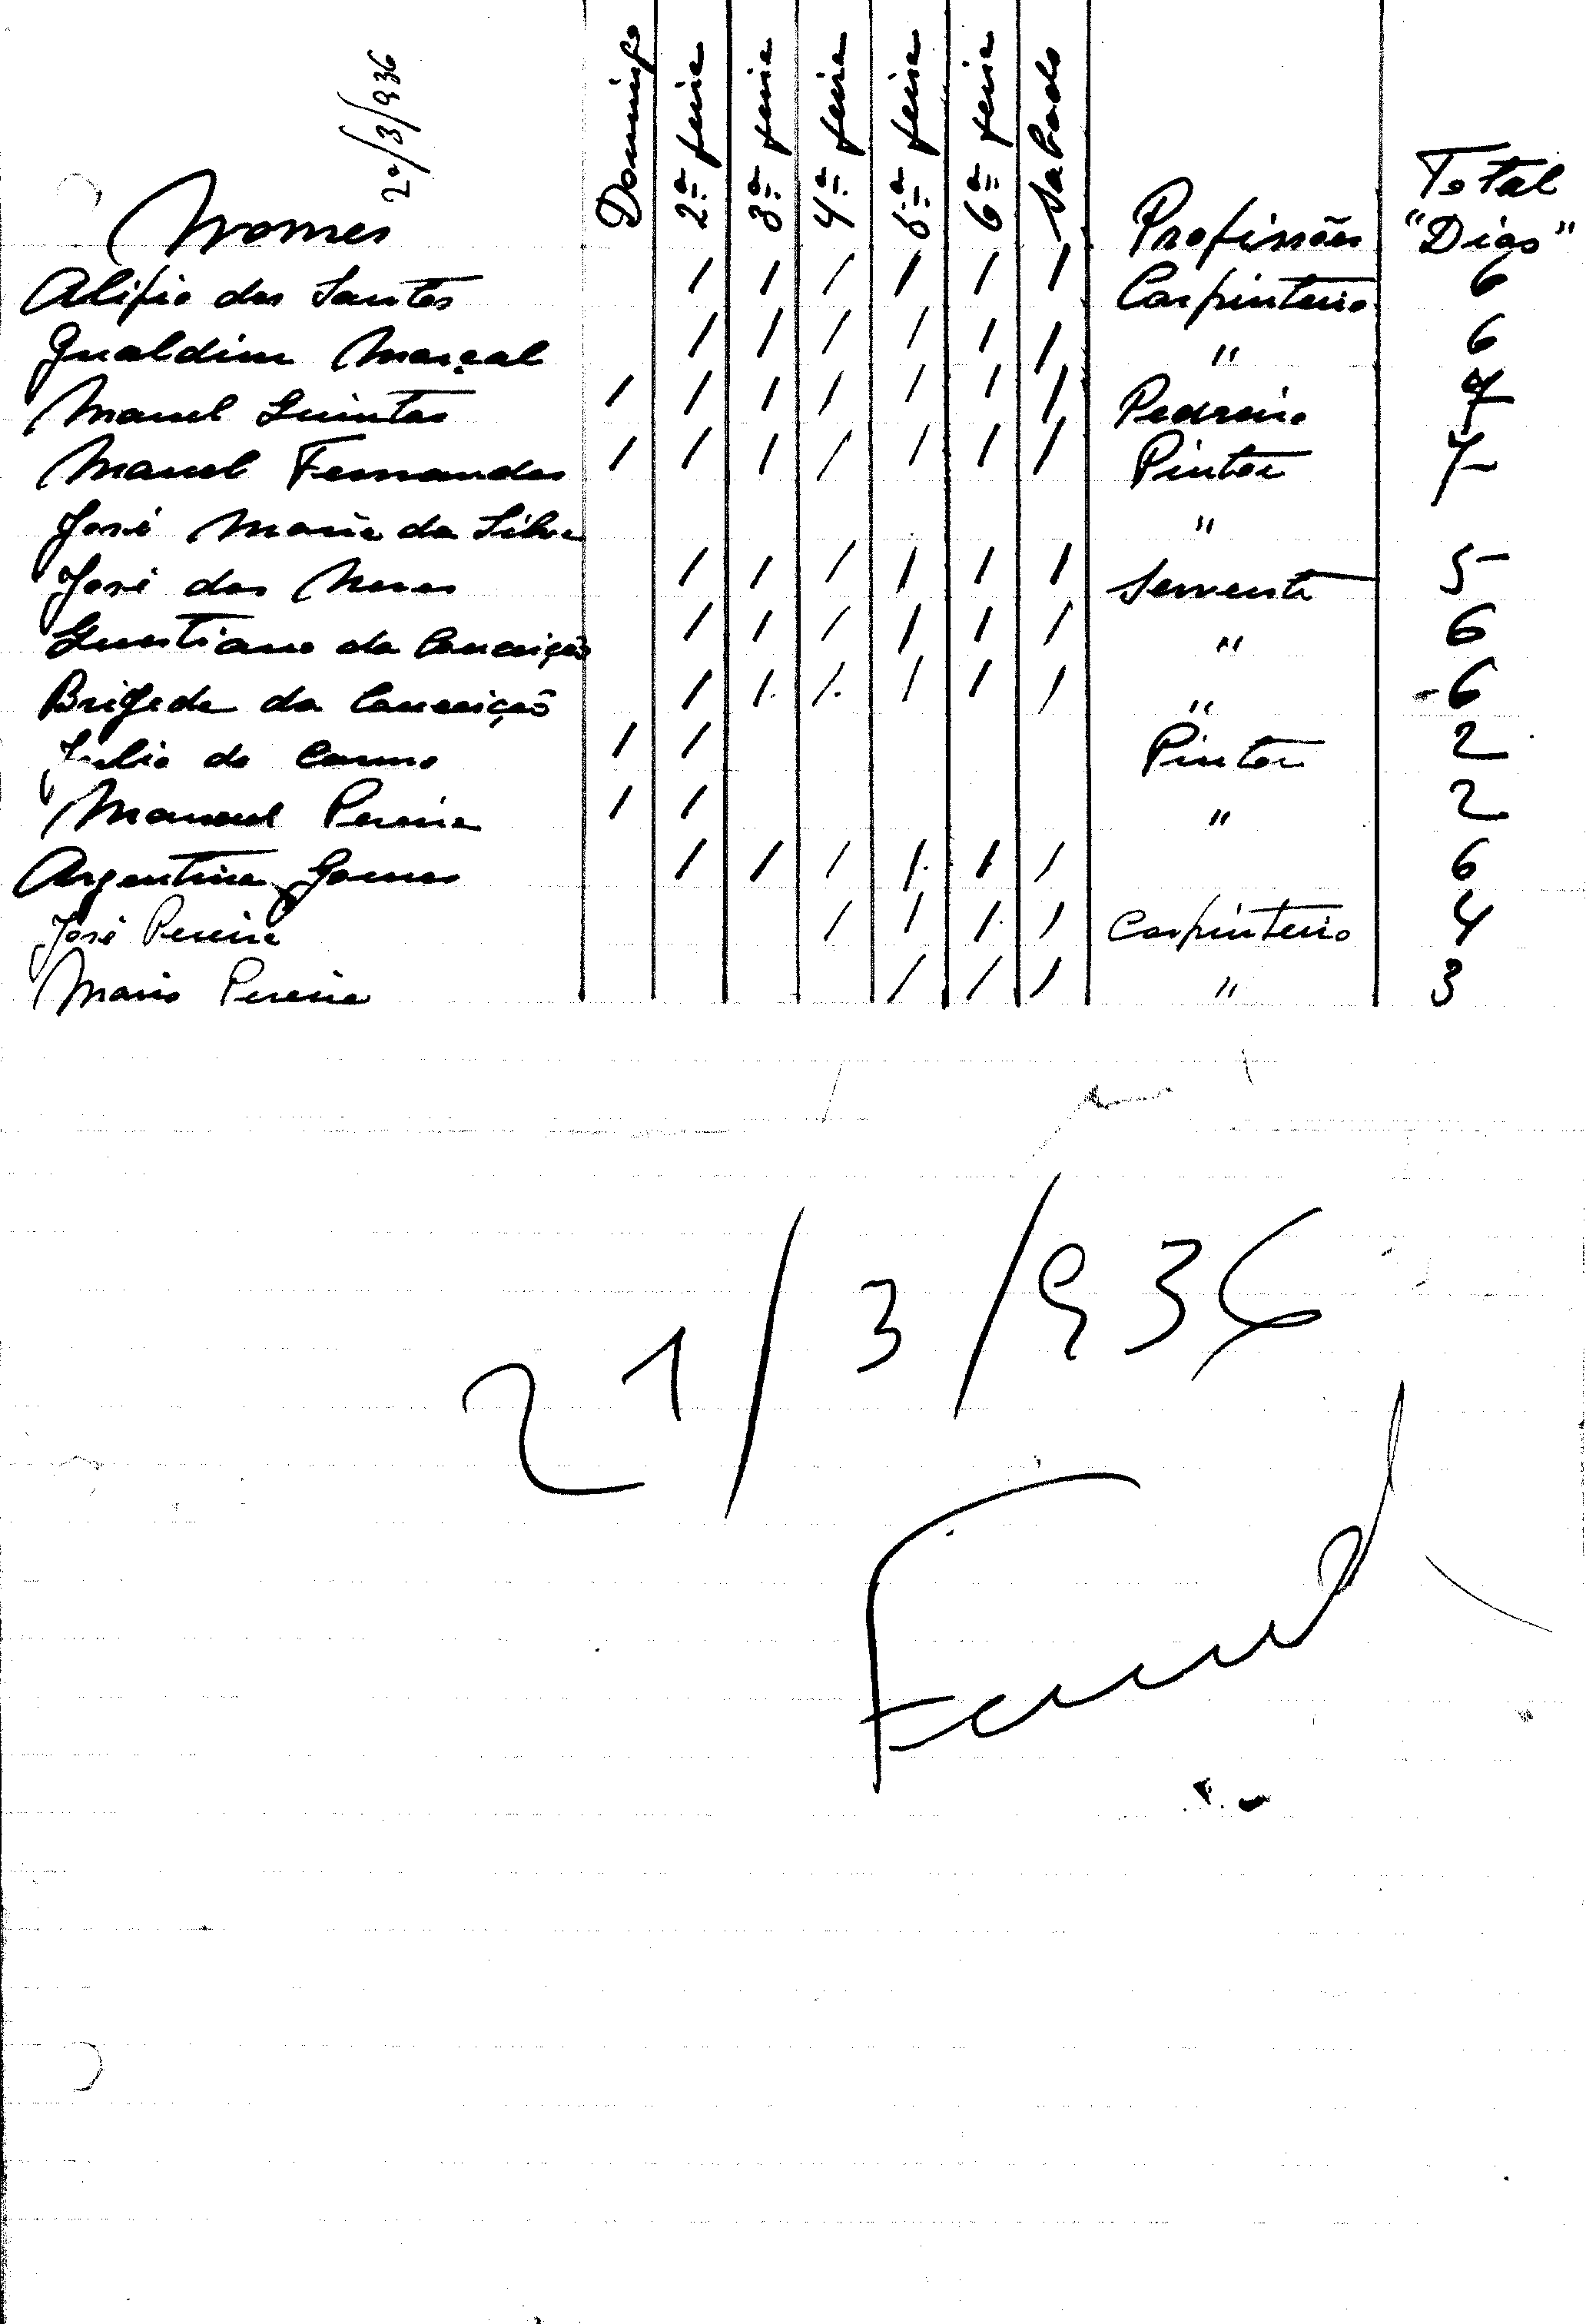 2º/3/936
Nomes Domingo 2.ª feira 3.ª feira 4.ª feira 5.ª feira 6.ª feira Sabado Profissões Total "Dias"
Alipio dos Santos / / / / / / Carpinteiro 6
Gualdim Marçal / / / / / / " 6
Manuel Quintas / / / / / / / Pedreiro 7
Manuel Fernandes / / / / / / / Pintor 7
José Maria da Silva "
José das Neves / / / / / / Servente 5
da Conceição / / / / / / " 6
Brigeda da Conceição / / / / / / " 6
Julio do Carmo / / Pintor 2
Manuel Pereira / / " 2
Argentina Gomes / / / / / / 6
José Pereira / / / / Carpinteiro 4
Mario Pereira / / / " 3
21/3/936